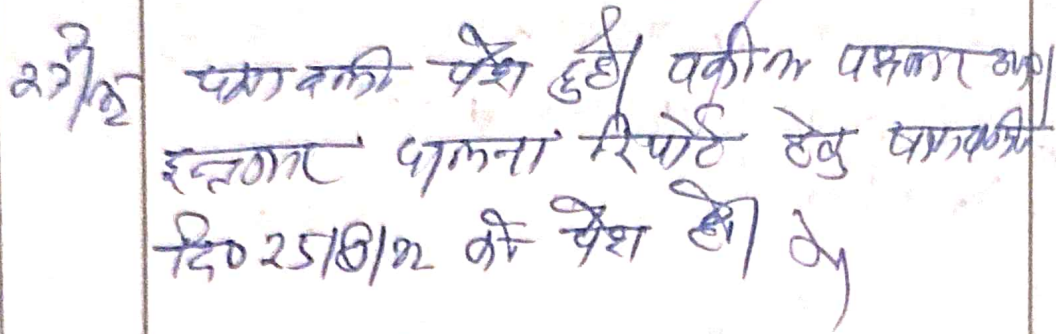 पत्रावली पेश हुई। वकील पक्षकार उप०।
इन्तजार पालना रिपोर्ट हेतु पत्रावली
दि० 25/8/22 को पेश हो।